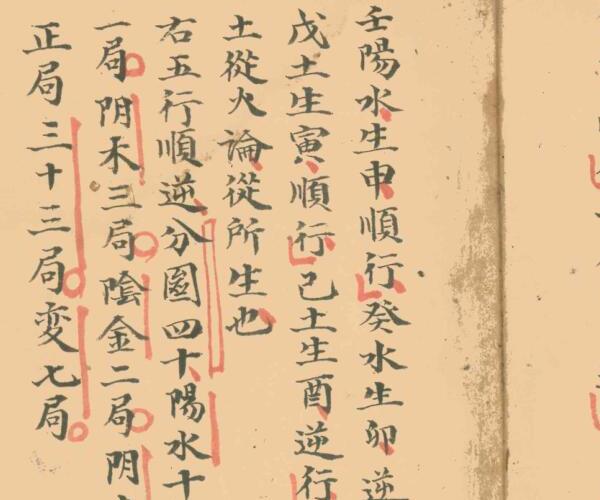 壬陽水生申順行癸水生卯逆
戊土生寅順行己土生酉逆行
土從火論從所生也
右五行順逆分圖四十陽水十
一局阴木三局陰金二局阴
正局三十三局变七局